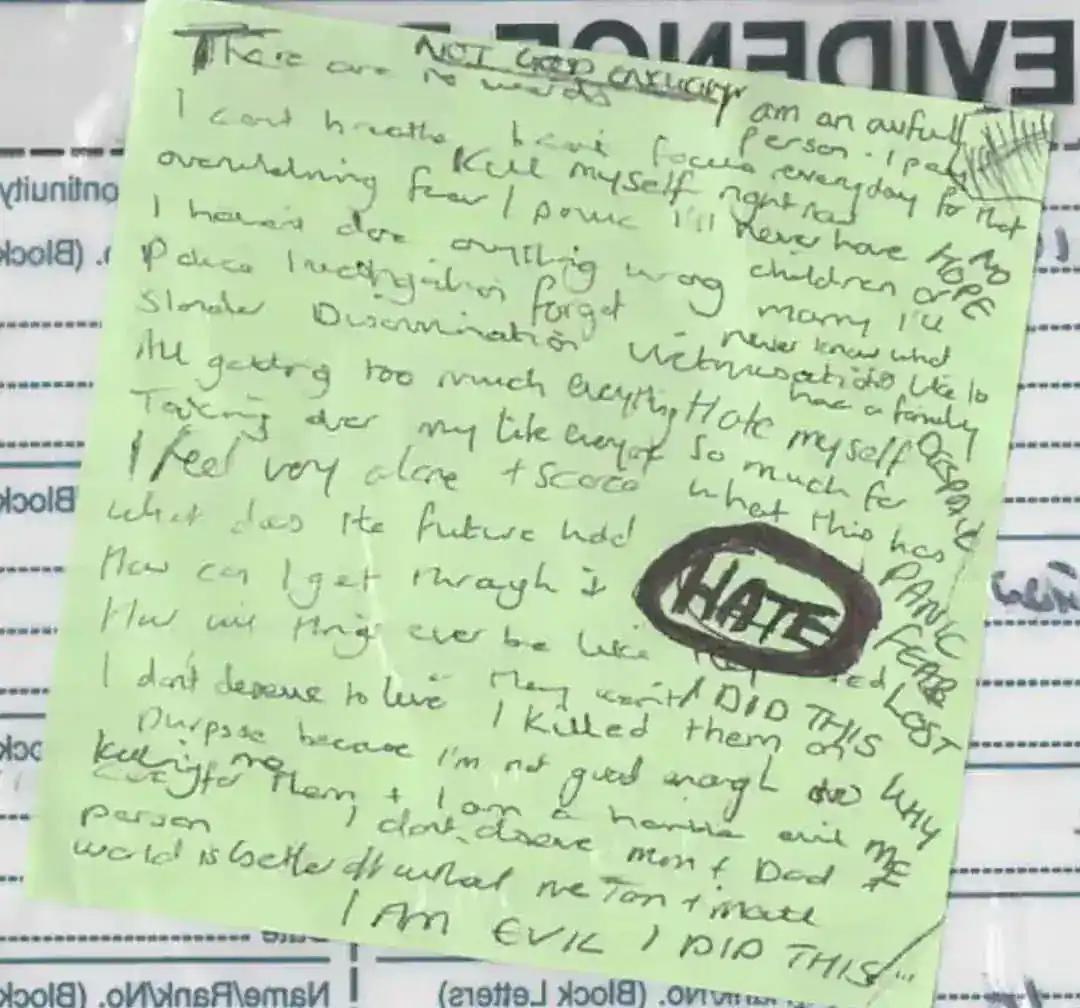 EVIDENCE
NOT GOOD ENOUGH
There are no words
I am an awful
person. I pay
everyday for that
I cant breathe I can't focus
Kill myself right now
overwhelming fear / panic I'll never have
NO HOPE
children or
I haven't done anything wrong marry I'll
Police Investigation forget never know what
Slander Discrimination Victimisation like to
have a family
All getting too much everything Hate myself
DESPAIR
Taking over my life everyof so much for
I feel very alone + scared what this has
PANIC
what does the future hold
How can I get through it
HATE
FEAR
LOST
How will things ever be like
I DID THIS
I don't deserve to live I killed them on
purpose because I'm not good enough to
WHY ME
care for them + I am a horrible evil
killing me
person I don't deserve mum + Dad
world is better off without me Tom + matt
I AM EVIL I DID THIS
ontinuity
. (Block
Block
Name/Rank/No. (Block
Rank/No. (Block Letters)